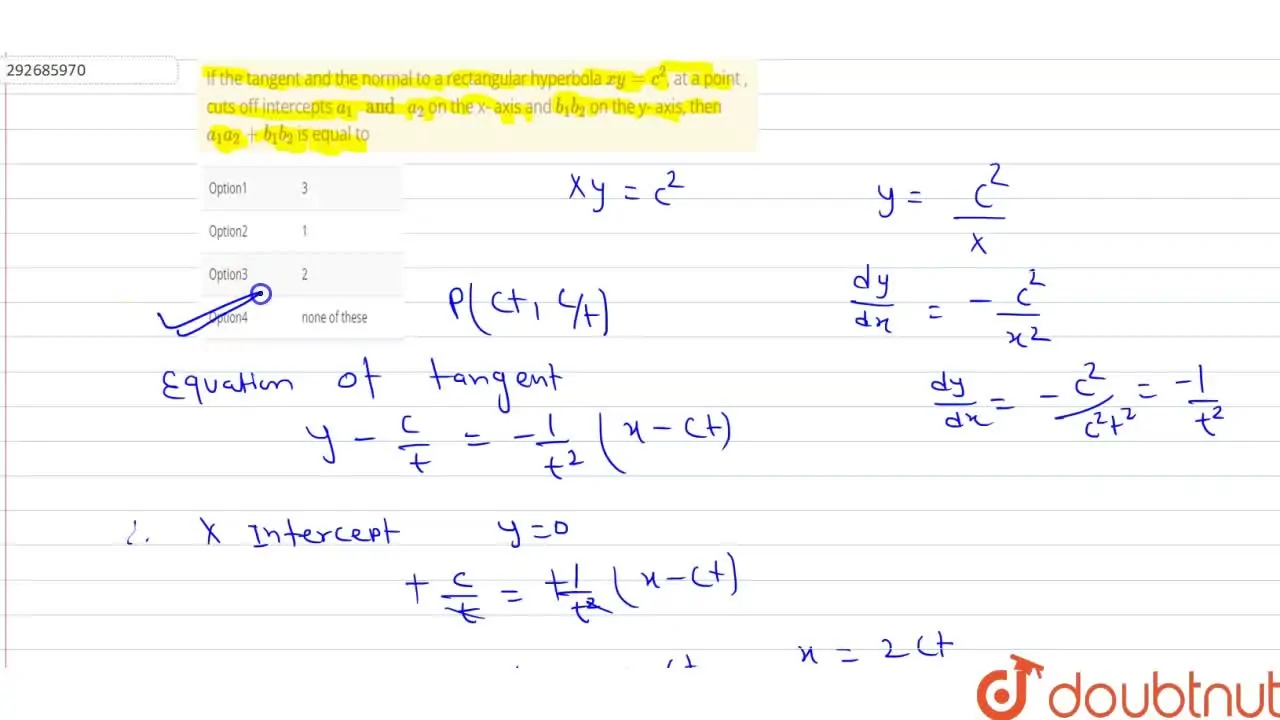 292685970
If the tangent and the normal to a rectangular hyperbola xy = c², at a point ,
cuts off intercepts a₁ and a₂ on the x- axis and b₁b₂ on the y- axis, then
a₁a₂ + b₁b₂ is equal to
Option1 3
Option2 1
Option3 2
Option4 none of these
xy = c²
y = c²/x
P(ct, c/t)
dy/dx = - c²/x²
Equation of tangent
dy/dx = - c²/c²t² = -1/t²
y - c/t = -1/t² (x - ct)
∴ X Intercept y=0
+ c/t = +1/t² (x - ct)
x = 2ct
doubtnut